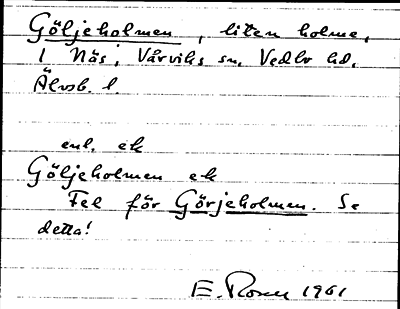 Göljeholmen, liten holme,
i Näs, Vårviks sn, Vedbo hd,
Älvsb. l.
enl. ek
Göljeholmen ek
Fel för Görjeholmen. Se
detta!
E. Rosen 1961